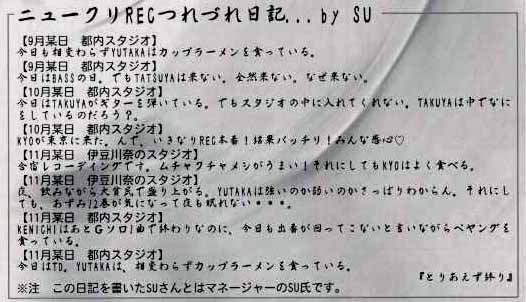 ニュークリREC つれづれ日記...by SU
【9月某日　都内スタジオ】
今日も相変わらずYUTAKAはカップラーメンを食っている。
【9月某日　都内スタジオ】
今日はBASSの日。でもTATSUYAは来ない。全然来ない。なぜ来ない。
【10月某日　都内スタジオ】
今日はTAKUYAがギターを弾いている。でもスタジオの中に入れてくれない。TAKUYAは中でなに
をしているのだろう？。
【10月某日　都内スタジオ】
KYOが東京に来た。んで、いきなりREC本番！結果バッチリ！みんな感心♡
【11月某日　伊豆川奈のスタジオ】
合宿レコーディングです。ムチャクチャメシがうまい！それにしてもKYOはよく食べる。
【11月某日　伊豆川奈のスタジオ】
夜、飲みながら大貧民で盛り上がる。YUTAKAは強いのか弱いのかさっぱりわからん。それにし
ても、あずみ12巻が気になって夜も眠れない・・・。
【11月某日　都内スタジオ】
KENICHIはあとGソロ1曲で終わりなのに、今日も出番が回ってこないと言いながらペヤングを
食っている。
【11月某日　都内スタジオ】
今日はTD。YUTAKAは、相変わらずカップラーメンを食っている。
『とりあえず終り』
※注　この日記を書いたSUさんとはマネージャーのSU氏です。